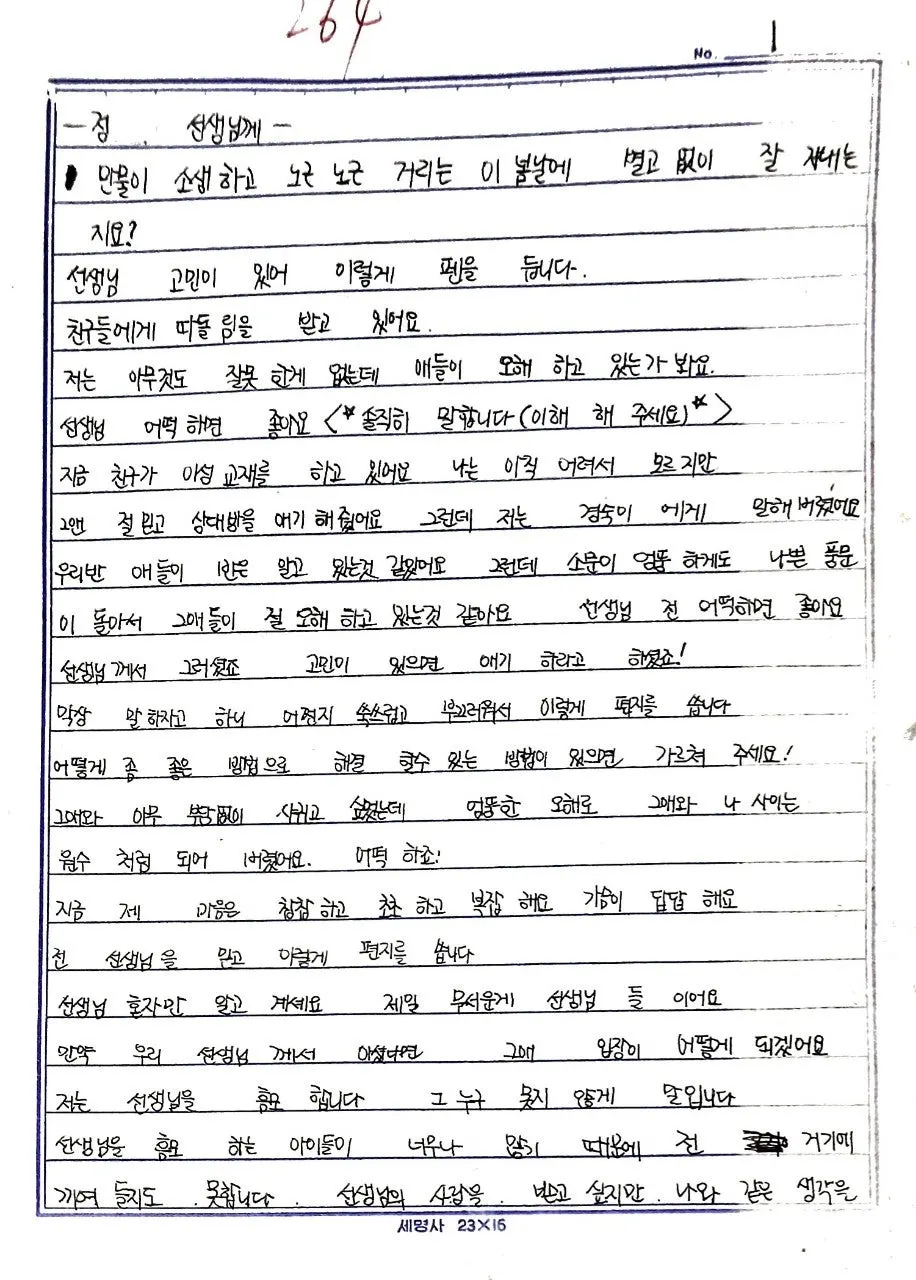 264
No. 1
- 점 . 선생님께 -
만물이 소생하고 노근 노근 거리는 이 봄날에 별고 없이 잘 지내는
지요?
선생님 고민이 있어 이렇게 펜을 듭니다.
친구들에게 따돌림을 받고 있어요.
저는 아무것도 잘못 한게 없는데 애들이 오해 하고 있는가 봐요.
선생님 어떡 하면 좋아요 <*솔직히 말합니다(이해 해 주세요)*>
지금 친구가 이성 교재를 하고 있어요 나는 아직 어려서 모르지만
그앤 절 믿고 상대방을 얘기 해 줬어요 그런데 저는 경숙이 에게 말해 버렸어요
우리반 애들이 1반은 알고 있는것 같았어요 그런데 소문이 엉뚱 하게도 나쁜 풍문
이 돌아서 그애들이 절 오해 하고 있는것 같아요 선생님 전 어떡하면 좋아요
선생님께서 그러셨죠 고민이 있으면 얘기 하라고 하셨죠!
막상 말 하자고 하니 어쩐지 쑥쓰럽고 부끄러워서 이렇게 편지를 씁니다
어떻게 좀 좋은 방법으로 해결 할수 있는 방법이 있으면 가르쳐 주세요!
그애와 아무 부담없이 사귀고 싶었는데 엉뚱한 오해로 그애와 나 사이는
원수 처럼 되어 버렸어요. 어떡 하죠!
지금 제 마음은 침참하고 초초 하고 복잡 해요 가슴이 답답 해요
전 선생님을 믿고 이렇게 편지를 씁니다
선생님 혼자만 알고 계세요 제일 무서운게 선생님 들 이어요
만약 우리 선생님 께서 아셨다면 그애 입장이 어떻게 되겠어요
저는 선생님을 흠모 합니다 그 누구 못지 않게 말입니다
선생님을 흠모 하는 아이들이 너무나 많기 때문에 전 거기에
끼여 들지도 못합니다. 선생님의 사랑을 받고 싶지만 나와 같은 생각을
세명사 23×16